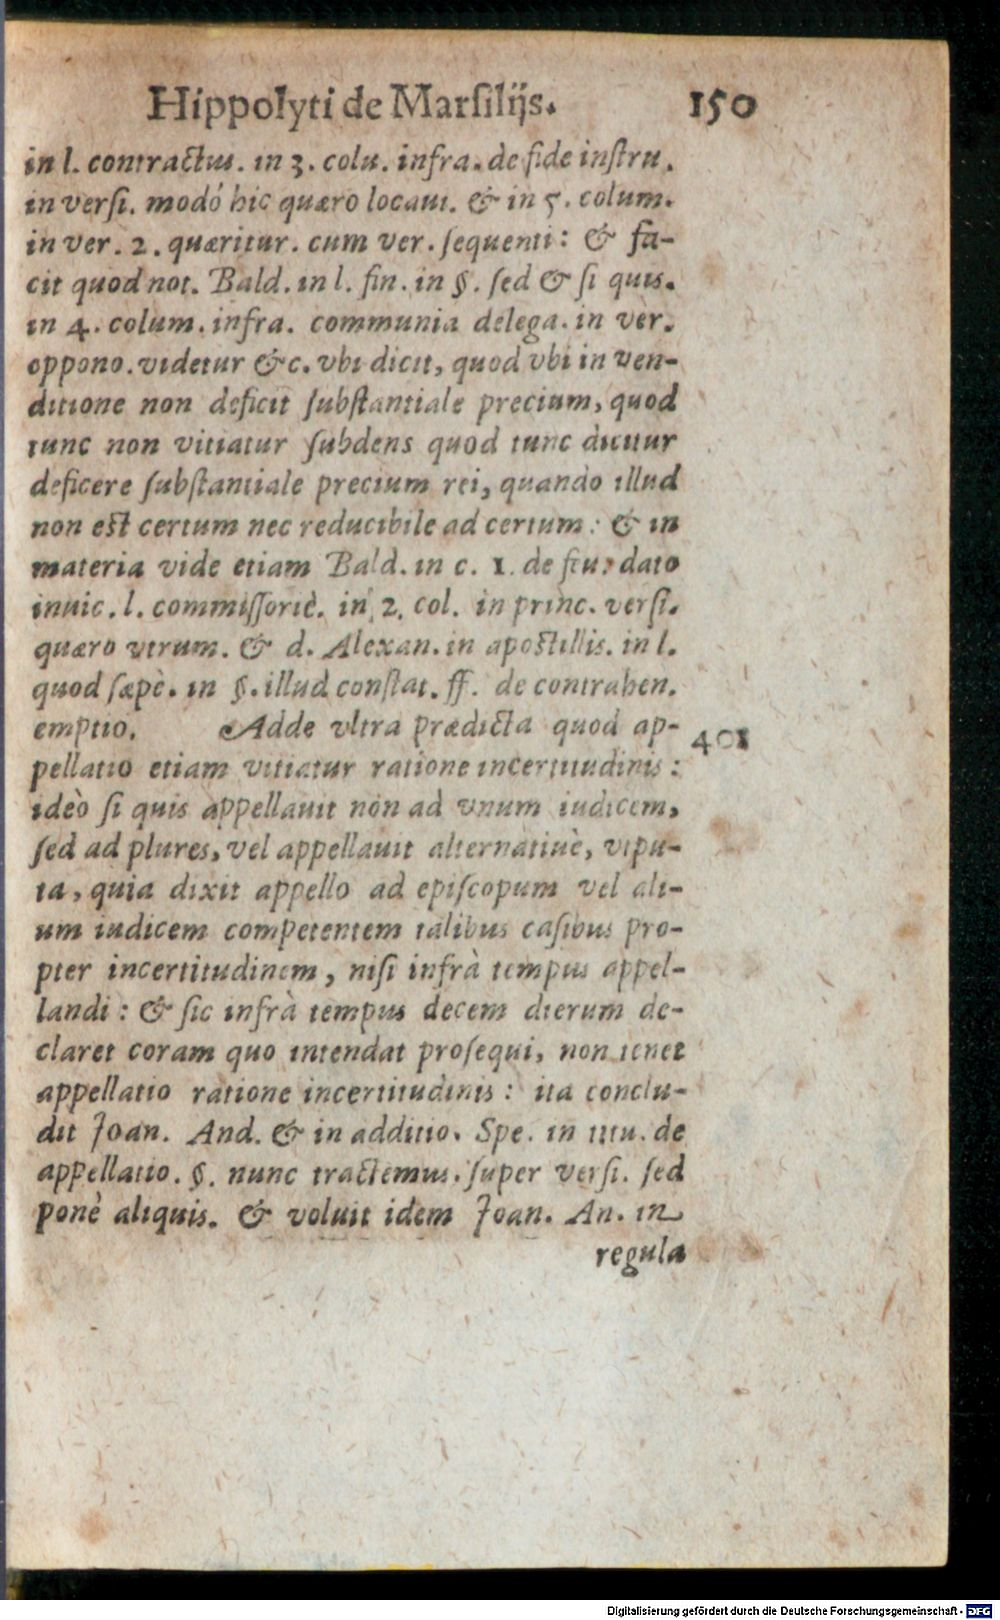 Hippolyti de Marſilijs. 150
in l. contractus. in 3. colu. infra. de fide inſtru.
in verſi. modò hic quæro locaui. & in 5. colum.
in ver. 2. quæritur. cum ver. ſequenti: & fa-
cit quod not. Bald. in l. fin. in §. ſed & ſi quis.
in 4. colum. infra. communia delega. in ver.
oppono. videtur &c. vbi dicit, quod vbi in ven-
ditione non deficit ſubſtantiale precium, quod
tunc non vitiatur ſubdens quod tunc dicitur
deficere ſubſtantiale precium rei, quando illud
non eſt certum nec reducibile ad certum: & in
materia vide etiam Bald. in c. 1. de feu. dato
inuic. l. commiſſoriè. in 2. col. in princ. verſi.
quæro vtrum. & d. Alexan. in apoſtillis. in l.
quod ſæpè. in §. illud conſtat. ff. de contrahen.
emptio. Adde vltra prædicta quod ap-
401
pellatio etiam vitiatur ratione incertitudinis:
ideò ſi quis appellauit non ad vnum iudicem,
ſed ad plures, vel appellauit alternatiuè, vtpu-
ta, quia dixit appello ad epiſcopum vel ali-
um iudicem competentem talibus caſibus pro-
pter incertitudinem, niſi infrà tempus appel-
landi: & ſic infrà tempus decem dierum de-
claret coram quo intendat proſequi, non tenet
appellatio ratione incertitudinis: ita conclu-
dit Joan. And. & in additio. Spe. in titu. de
appellatio. §. nunc tractemus. ſuper verſi. ſed
ponè aliquis. & voluit idem Joan. An. in
regula
Digitalisierung gefördert durch die Deutsche Forschungsgemeinschaft - DFG